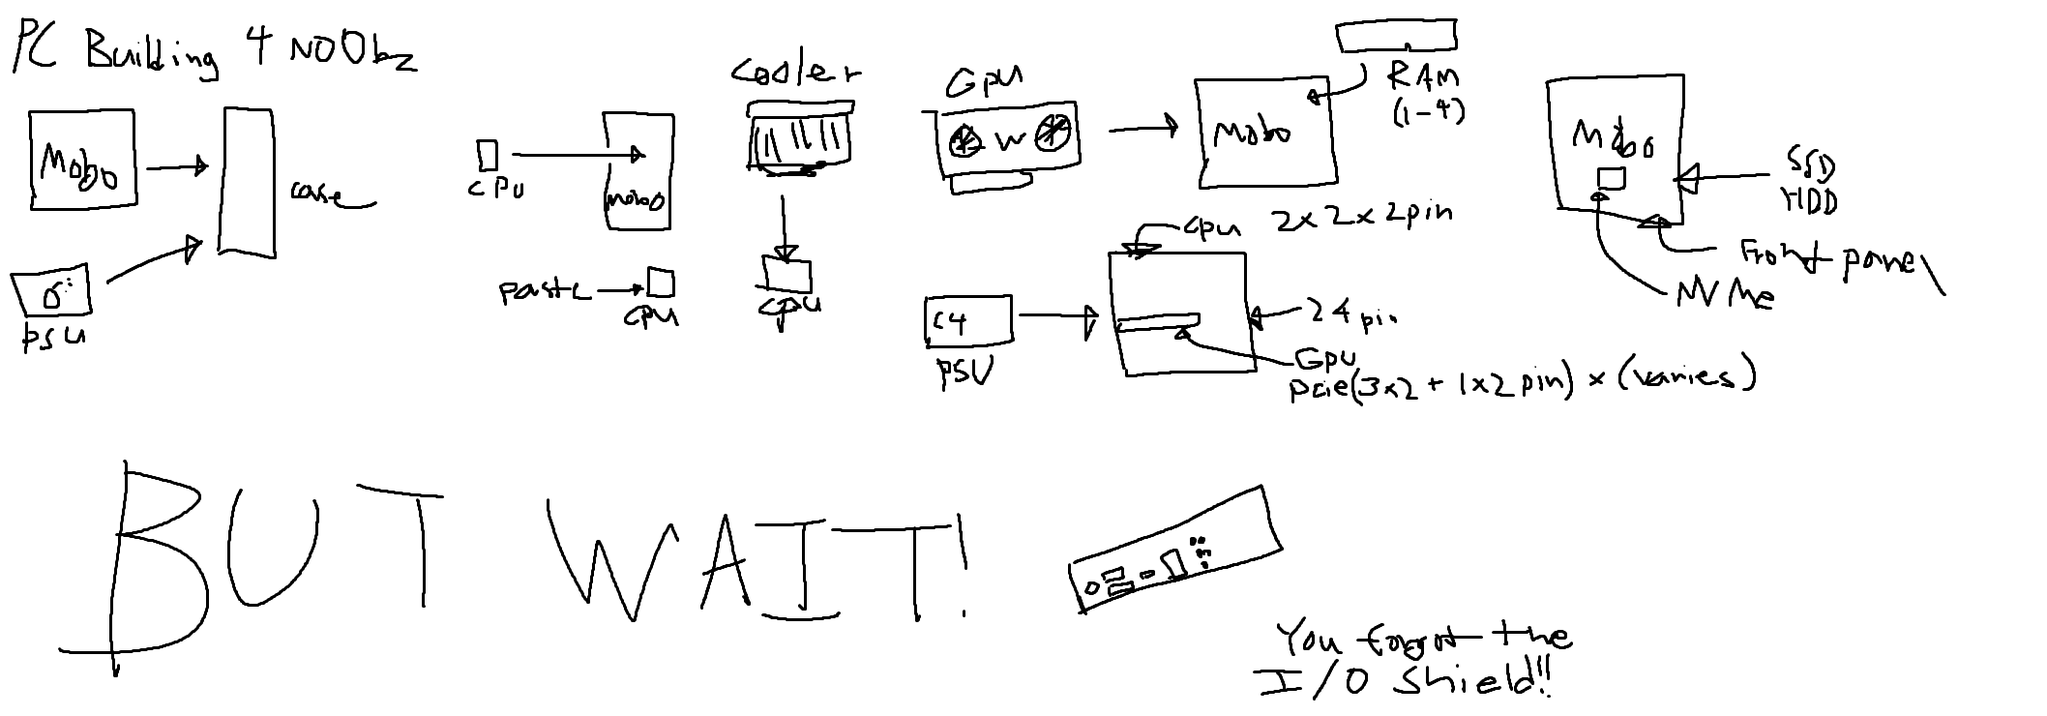 PC Building 4 N00bz
Mobo
case
PSU
CPU
Mobo
paste
CPU
Cooler
CPU
GPU
W
Mobo
RAM
(1-4)
C4
PSU
CPU 2x2x2pin
24 pin
GPU
pcie(3x2 + 1x2 pin) x (varies)
Mobo
SSD
HDD
Front panel
NVMe
BUT WAIT!
You forgot the
I/O Shield!!